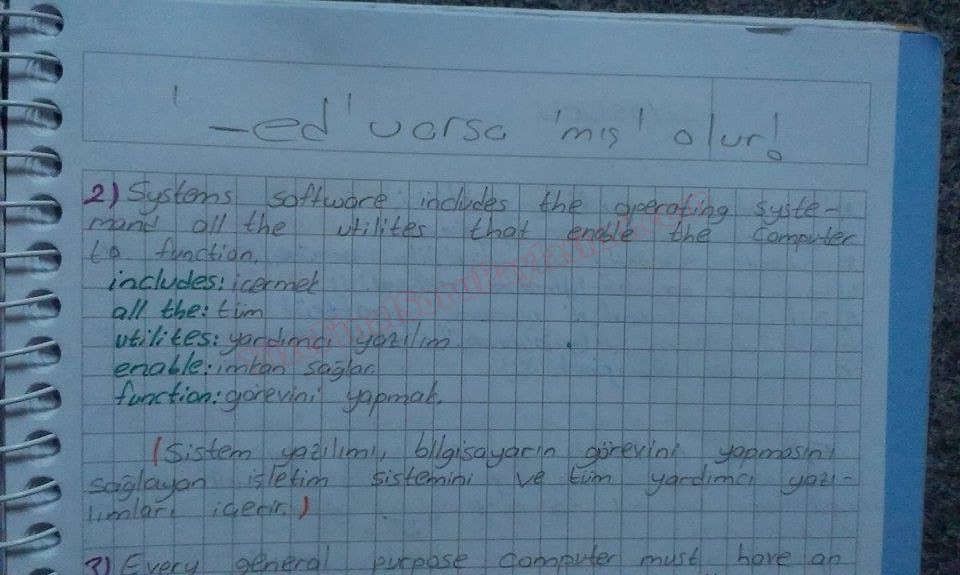 '-ed' varsa 'mış' olur!
2) Systems software includes the operating syste-
mand all the utilites that enable the computer
to function.
includes: icermek
all the: tüm
utilites: yardımcı yazılım
enable: imkan sağlar.
function: görevini yapmak.
(Sistem yazılımı, bilgisayarın görevini yapmasını
sağlayan işletim sistemini ve tüm yardımcı yazı-
lımları içerir.)
3) Every general purpose computer must have an